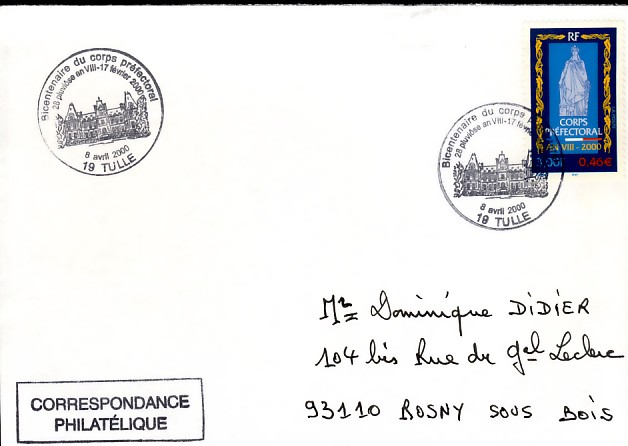 Bicentenaire du corps préfectoral
28 pluviôse an VIII-17 février 2000
8 avril 2000
19 TULLE
Bicentenaire du corps
28 pluviôse an VIII-17
8 avril 2000
19 TULLE
RF
CORPS
PRÉFECTORAL
AN VIII - 2000
3,00F 0,46€
Mr Dominique DIDIER
104 bis Rue du Gel Leclerc
93110 ROSNY SOUS BOIS
CORRESPONDANCE
PHILATÉLIQUE